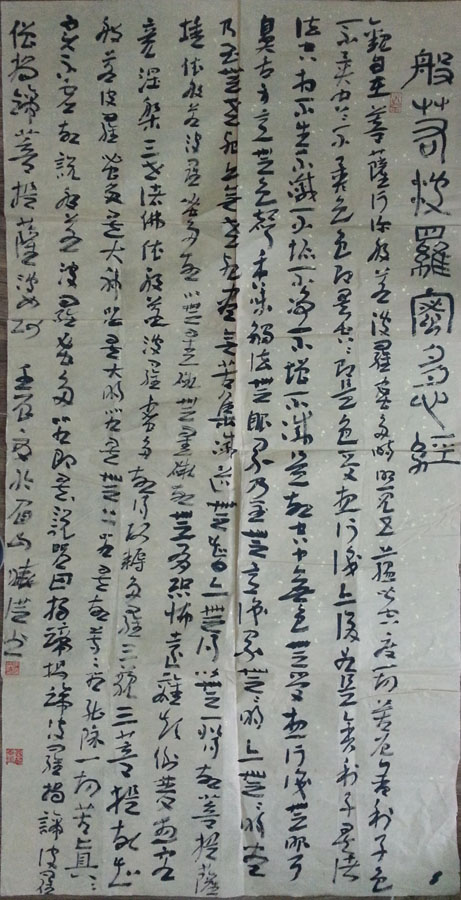 般若波羅蜜多心經
觀自在菩薩行深般若波羅蜜多時照見五蘊皆空度一切苦厄舍利子色
不異空空不異色色即是空空即是色受想行識亦復如是舍利子是諸
法空相不生不滅不垢不淨不增不減是故空中無色無受想行識無眼耳
鼻舌身意無色聲香味觸法無眼界乃至無意識界無無明亦無無明盡
乃至無老死亦無老死盡無苦集滅道無智亦無得以無所得故菩提薩
埵依般若波羅蜜多故心無罣礙無罣礙故無有恐怖遠離顛倒夢想究
竟涅槃三世諸佛依般若波羅蜜多故得阿耨多羅三藐三菩提故知
般若波羅蜜多是大神咒是大明咒是無上咒是無等等咒能除一切苦真
實不虛故說般若波羅蜜多咒即說咒曰揭諦揭諦波羅揭諦波羅
僧揭諦菩提薩婆訶